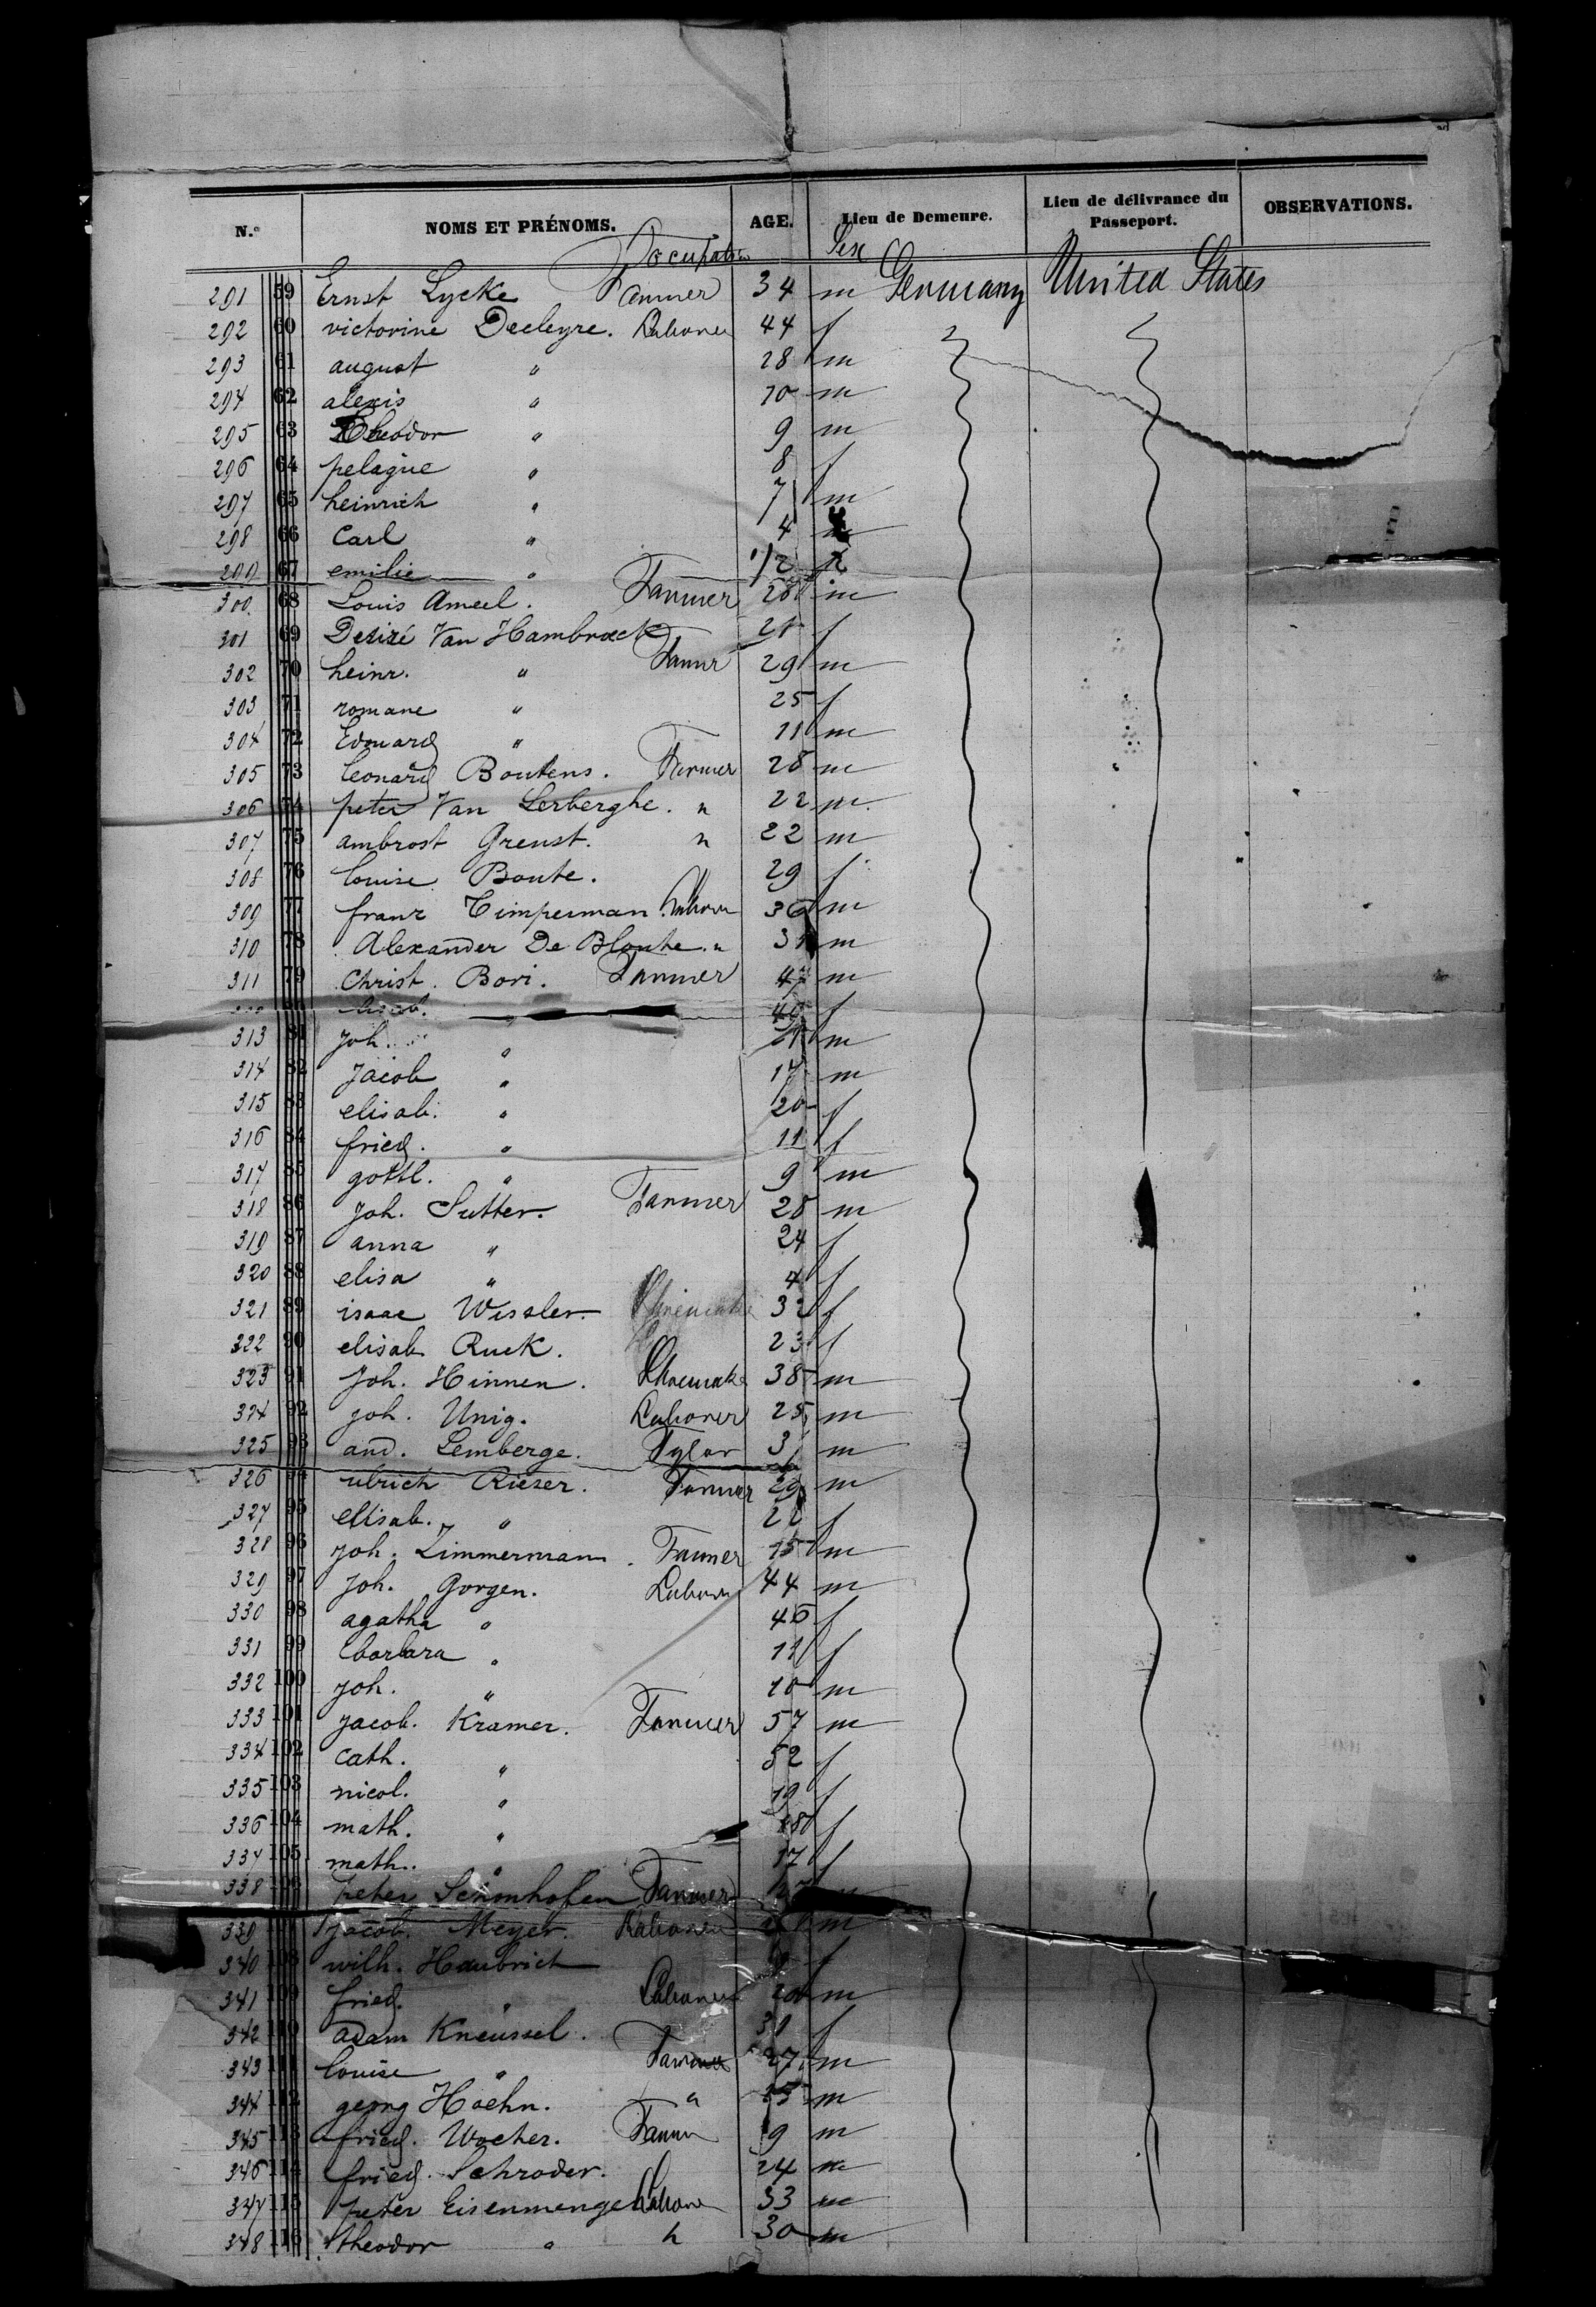 N.º NOMS ET PRÉNOMS. AGE. Lieu de Demeure. Lieu de délivrance du Passeport. OBSERVATIONS.
Occupation Sex
291 59 Ernst Lycke Farmer 34 m Germany United States
292 60 victorine Decleyre. Laborer 44 f
293 61 august " 28 m
294 62 alexis " 10 m
295 63 Theodor " 9 m
296 64 pelagie " 8 f
297 65 heinrich " 7 m
298 66 Carl " 4
299 67 emilie " 1/2
300 68 Louis Ameel. Farmer 28 m
301 69 Desiré Van Hambroeck 21 f
302 70 heinr. " Farmr 29 m
303 71 romane " 25 f
304 72 Edouard " 11 m
305 73 leonard Boutens. Farmer 28 m
306 74 peter Van Lerberghe. " 22 m.
307 75 ambrost Greust. " 22 m
308 76 louise Boute. 29 f
309 77 franz Timperman. Laborer 36 m
310 78 Alexander De Blonte. " 31 m
311 79 Christ. Bori. Farmer 47 m
" 40 f
313 81 Joh. " 21 m
314 82 Jacob " 17 m
315 83 elisab. " 20 f
316 84 fried. " 11 f
317 85 gottl. " 9 m
318 86 Joh. Sutter. Farmer 28 m
319 87 anna " 24 f
320 88 elisa " 4 f
321 89 isaac Wissler. 32 f
322 90 elisab Ruck. 23 f
323 91 Joh. Hinnen. Shoemake 38 m
324 92 joh. Unig. Laborer 25 m
325 93 and. Lemberge. Tylor m
326 94 ulrich Rieser. Farmer 29 m
327 95 elisab. " 22 f
328 96 joh. Zimmermann. Farmer 15 m
329 97 Joh. Gorgen. Laborer 44 m
330 98 agatha " 46 f
331 99 barbara " 11 f
332 100 joh. " 10 m
333 101 jacob. Kramer. Farmer 57 m
334 102 cath. " 52 f
335 103 nicol. " 19 f
336 104 math. " 18 f
337 105 math. " 17 f
338 106 peter Schonhofen Farmer m
339 jacob. Meyer. Laborer m
340 108 wilh. Haubrich f
341 109 fried. " Laborer 20 m
342 110 adam Kneussel. 31 f
343 111 louise " Farmer 27 m
344 112 georg Hoehn. " 25 m
345 113 fried. Wocher. Farmer 9 m
346 114 fried. Schroder. 24 m
347 115 peter Eisenmenge Labore 33 m
348 116 theodor " " 30 m